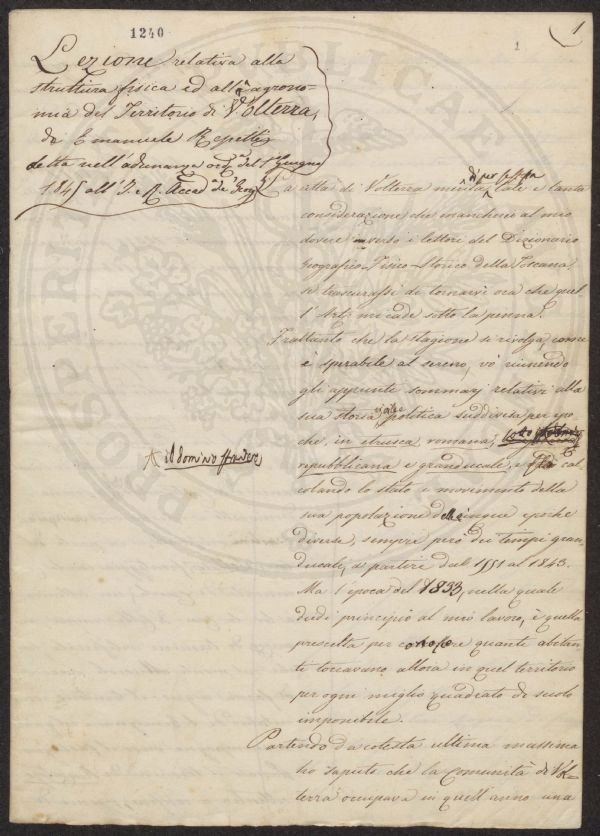 1240
1
1
Lezione relativa alla
struttura fisica ed all'agrono-
mia del Territorio di Volterra,
di Emanuele Repetti
detta nell'adunanza ord.a del 1° Giugno
1845 all'I. e R. Accad.a de' Georg.
La città di Volterra merita di per se stessa tale e tanta
considerazione che mancherei al mio
dovere verso i lettori del Dizionario
Geografico Fisico Storico della Toscana,
se trascurassi di tornarvi ora che quel-
l'Art. mi cade sotto la penna.
Frattanto che la stagione si rivolga, come
è sperabile al sereno, vò riunendo
gli appunti sommarj relativi alla
sua storia civile politica suddivisa per epo-
che, in etrusca, romana,
il domino straniero,
repubblicana e granducale, e cal-
colando lo stato e movimento della
sua popolazione delle cinque epoche
diverse, sempre però dei tempi gran-
ducali, a partire dal 1551 al 1843.
Ma l'epoca del 1833, nella quale
diedi principio al mio lavoro, è quella
prescelta per conoscere quante abitan-
ti toccavano allora in quel territorio
per ogni miglio quadrato di suolo
imponibile.
Partendo da cotesta ultima massima
ho saputo che la Comunità di Vol-
terra occupava in quell'anno una